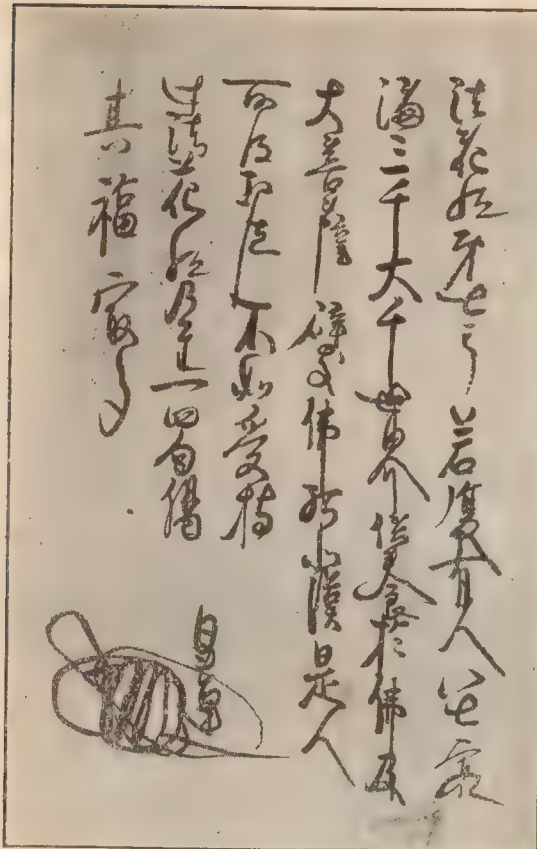 法花経第七云若復有人以七寳
満三千大千世界供養於佛及
大菩薩辟支佛阿羅漢是人
所得功徳不如受持
此法花経乃至一四句偈
其福寂多
日蓮